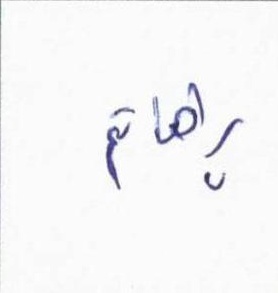 يراها تم